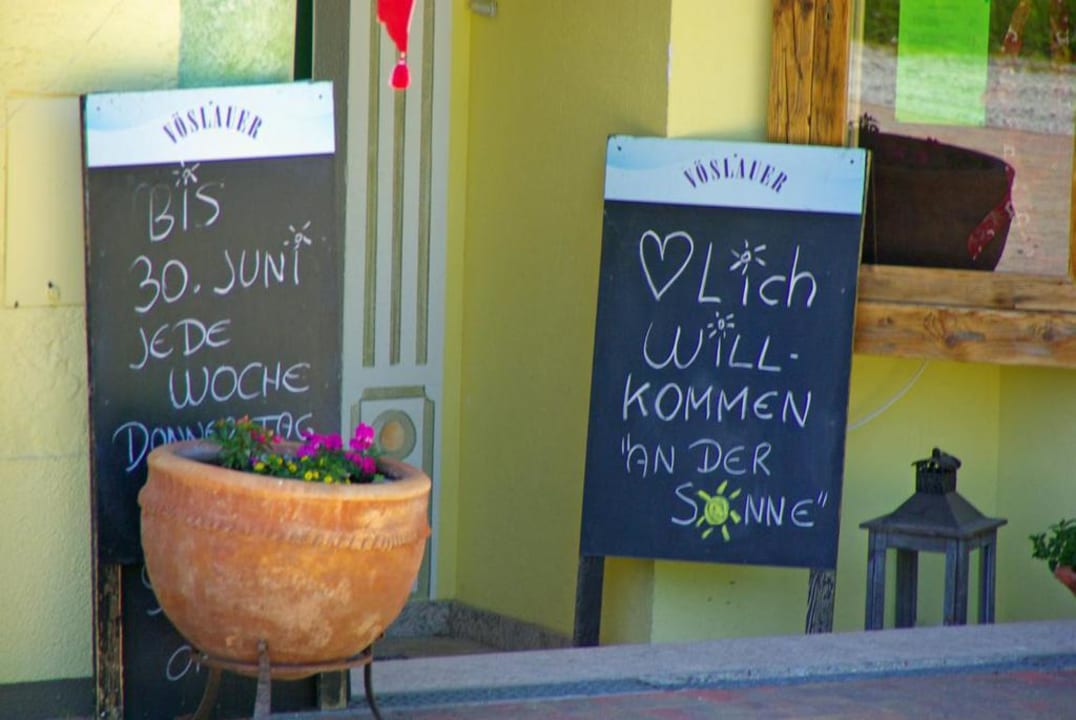 VÖSLAUER
BIS
30. JUNI
JEDE
WOCHE
DONNERSTAG
VÖSLAUER
♡Lich
WILL-
KOMMEN
"AN DER
SONNE"